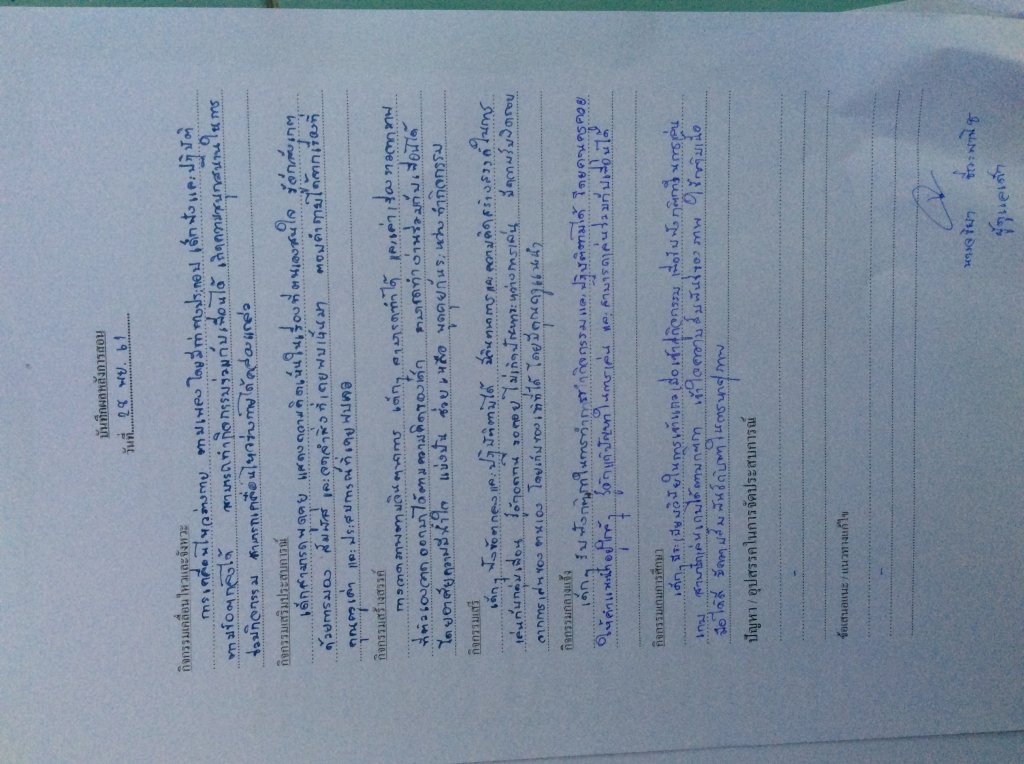 บันทึกผลหลังการสอน
วันที่ 28 พย. 61
กิจกรรมเคลื่อนไหวและจังหวะ
การเคลื่อนไหวร่างกาย ตามเพลง โดยมีท่าทางประกอบ เด็กฟังและปฏิบัติ
ตามข้อตกลงได้ สามารถทำกิจกรรมร่วมกับเพื่อนได้ เกิดความสนุกสนานในการ
ร่วมกิจกรรม สามารถเคลื่อนไหวร่างกายได้คล่องแคล่ว
กิจกรรมเสริมประสบการณ์
เด็กสามารถพูดคุย แสดงความคิดเห็นในเรื่องที่ตนเองสนใจ รู้จักสังเกต
ด้วยการมอง สัมผัส และจดจำสิ่งที่เคยพบเห็นมา ตอบคำถามได้จากเรื่องที่
คุณครูเล่า และประสบการณ์ที่เคยพบเจอ
กิจกรรมสร้างสรรค์
การวาดภาพตามจินตนาการ เด็กๆ สามารถทำได้ และเล่าเรื่องจากภาพ
ที่ตัวเองวาดออกมาได้ตามความคิดของเด็ก สามารถทำงานร่วมกับเพื่อนได้
โดยอาศัยความมีน้ำใจ แบ่งปัน ช่วยเหลือ พูดคุยกันระหว่างทำกิจกรรม
กิจกรรมเสรี
เด็กๆ ฟังข้อตกลงและปฏิบัติตามได้ มีจินตนาการและความคิดสร้างสรรค์ในการ
เล่นกับกลุ่มเพื่อน รู้จักอดทน รอคอย ไม่เกิดปัญหาระหว่างการเล่น มีความรับผิดชอบ
จากการเล่นของตนเอง โดยเก็บของเข้าที่ได้ โดยมีคุณครูแนะนำ
กิจกรรมกลางแจ้ง
เด็กๆ รับฟังกติกาในการทำกิจกรรมและปฏิบัติตามได้ โดยมีคุณครูคอย
ให้คำแนะนำอยู่ใกล้ๆ รู้จักแก้ปัญหาในการเล่น และสามารถเล่นร่วมกับเพื่อนได้
กิจกรรมเกมการศึกษา
เด็กๆ มีระเบียบวินัยในการเข้าแถวเพื่อเข้าทำกิจกรรม เพื่อรับฟังกติกาในการเล่น
เกม สามารถเล่นเกมได้ตามกติกา เข้าใจความสัมพันธ์ของภาพ ใช้กล้ามเนื้อ
มือได้ดี มีความสัมพันธ์กับตาในการหาคู่ภาพ
ปัญหา / อุปสรรคในการจัดประสบการณ์
-
ข้อเสนอแนะ / แนวทางแก้ไข
-
ผู้ดูแลเด็ก